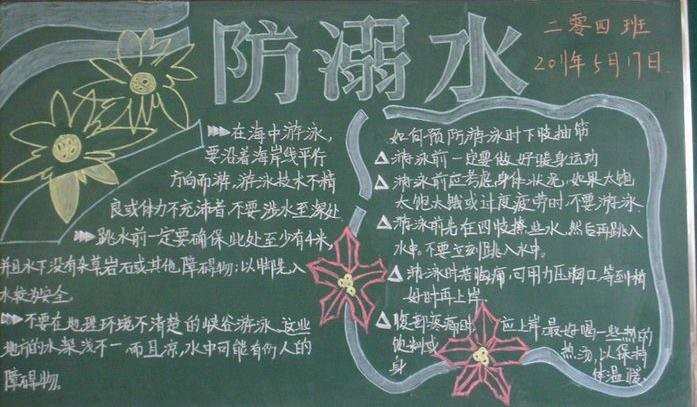 防溺水
二零四班
2011年5月17日
在海中游泳,
要沿着海岸线平行
方向而游,游泳技术不精
良或体力不充沛者,不要涉水至深处
跳水前一定要确保此处至少有4米,
并且水下没有杂草岩石或其他障碍物;以脚先入
水较为安全
不要在地理环境不清楚的峡谷游泳,这些
地方的水深浅不一而且凉,水中可能有伤人的
障碍物。
如何预防游泳时下肢抽筋
游泳前一定要做好暖身运动
游泳前应考虑身体状况,如果太饱
太饱太饿或过度疲劳时,不要游泳
游泳前先在四肢撩些水,然后再跳入
水中,不要立刻跳入水中。
游泳时若胸痛,可用力压胸口,等到稍
好时再上岸
腹部疼痛时,应上岸,最好喝一些热的
饮料或热汤,以保持
身体温暖